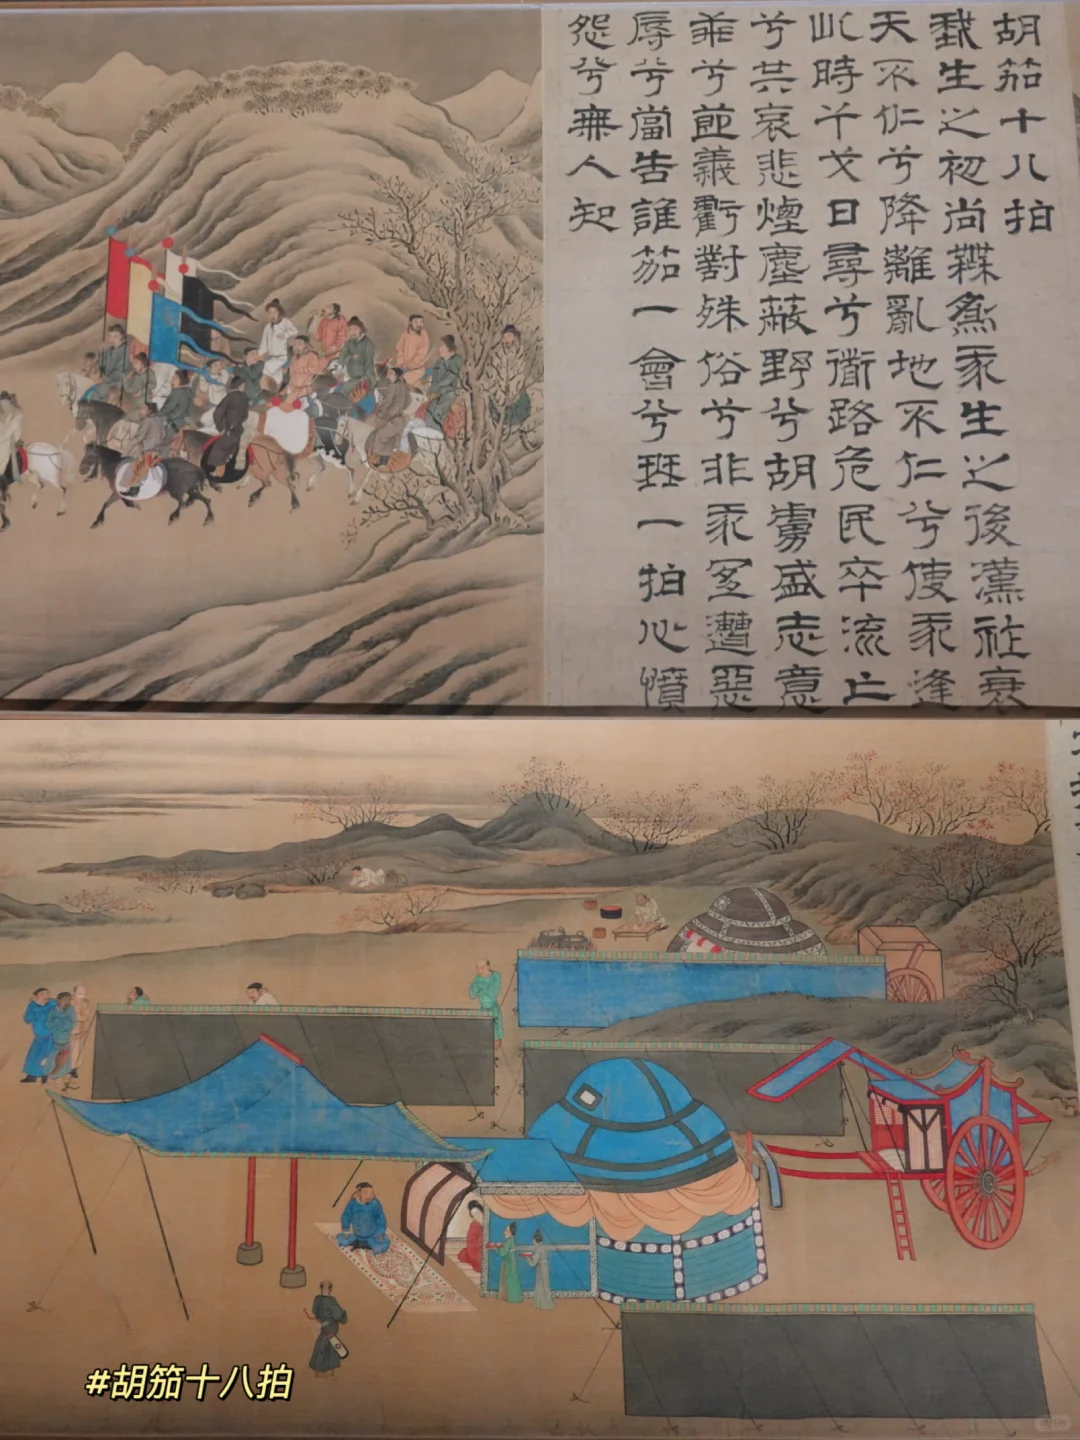 胡笳十八拍
我生之初尚無爲我生之後漢祚衰
天不仁兮降離亂地不仁兮使我逢
此時干戈日尋兮道路危民卒流亡
兮共哀悲煙塵蔽野兮胡虜盛志意
乖兮節義虧對殊俗兮非我宜遭惡
辱兮當告誰笳一會兮琴一拍心憤
怨兮無人知
#胡笳十八拍